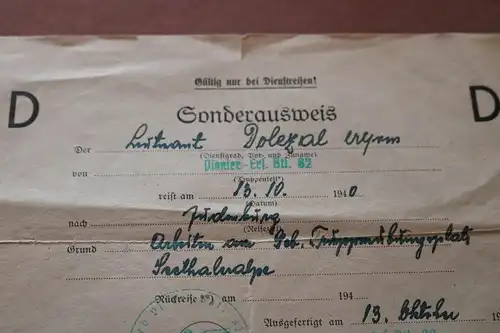 Gültig nur bei Dienstreisen!
D D
Sonderausweis
Der Leutnant Dolezal
(Dienstgrad, Vor- und Zuname)
von Pionier-Ers. Btl. 82
(Truppenteil)
reist am 13.10. 1940
(Datum)
nach Judenburg
(Reiseziel)
Grund Arbeiten am Geb. Truppenübungsplatz
Seethaleralpe
Rückreise am 194
Ausgefertigt am 13. Oktober